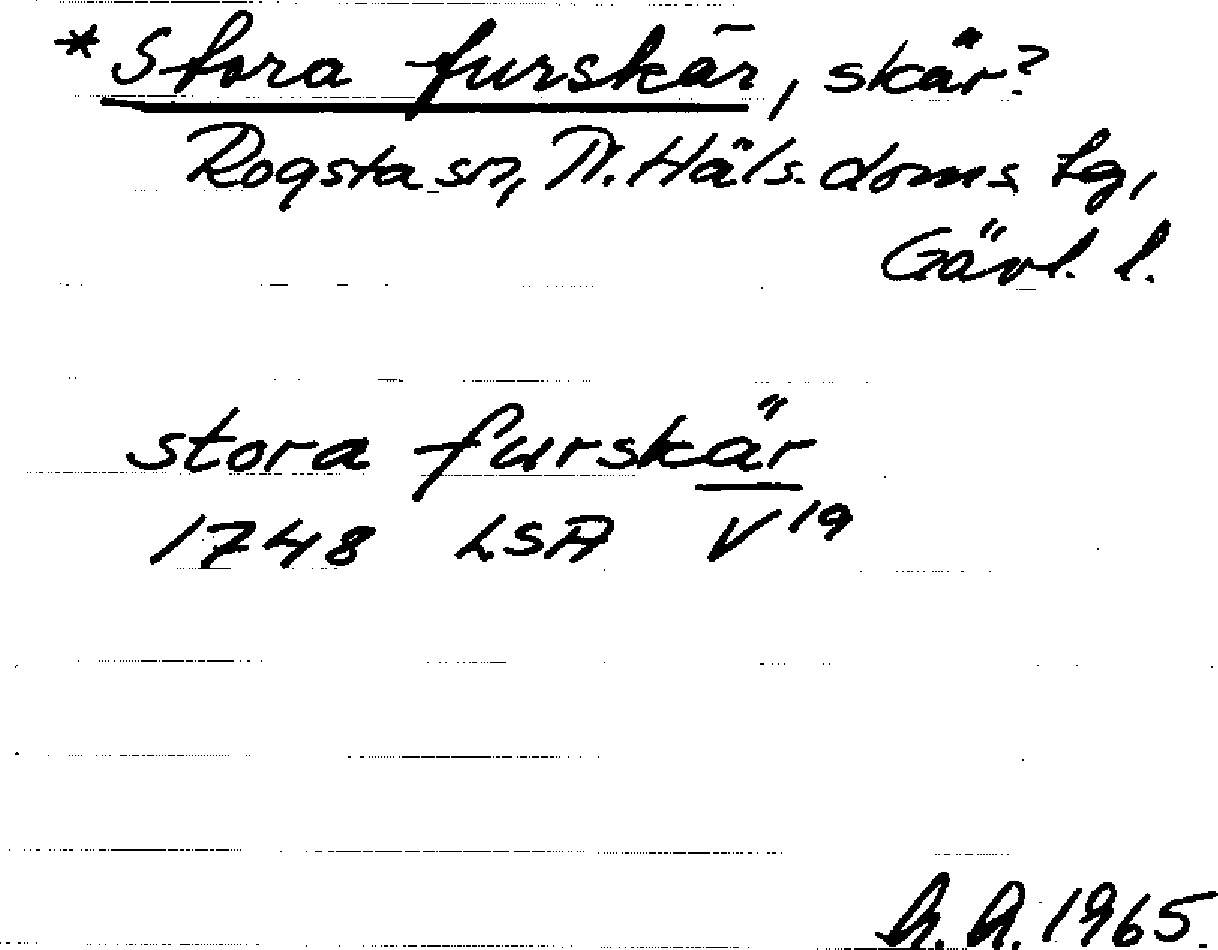 *Stora furskär, skär?
Rogsta sn, N. Häls. doms. tg,
Gävl. l.
stora furskär
1748 LSA V19
h. h. 1965